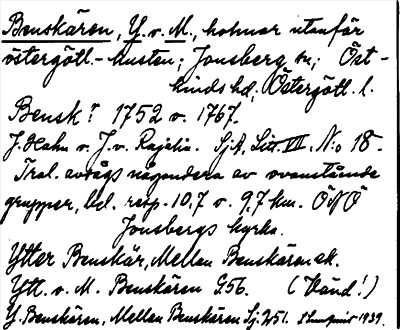 Benskären, Y. o. M., holmar utanför
östergötl.-kusten; Jonsberg sn; Öst-
kinds hd, Östergötl. l.
Bensk? 1752 o. 1767.
J. Hahn o. J. v. Rajalin. SjA, Litt. VII, N:o 18.
Tral. avsågs någondera av ovanstående
grupper, bel. resp. 10,7 o. 9,7 km. ÖNÖ
Jonsbergs kyrka.
Ytter Benskär, Mellan Benskären ek.
Ytt. o. M. Benskären G56. (Vänd!)
Y. Benskären, Mellan Benskären Sj 251. 1939.